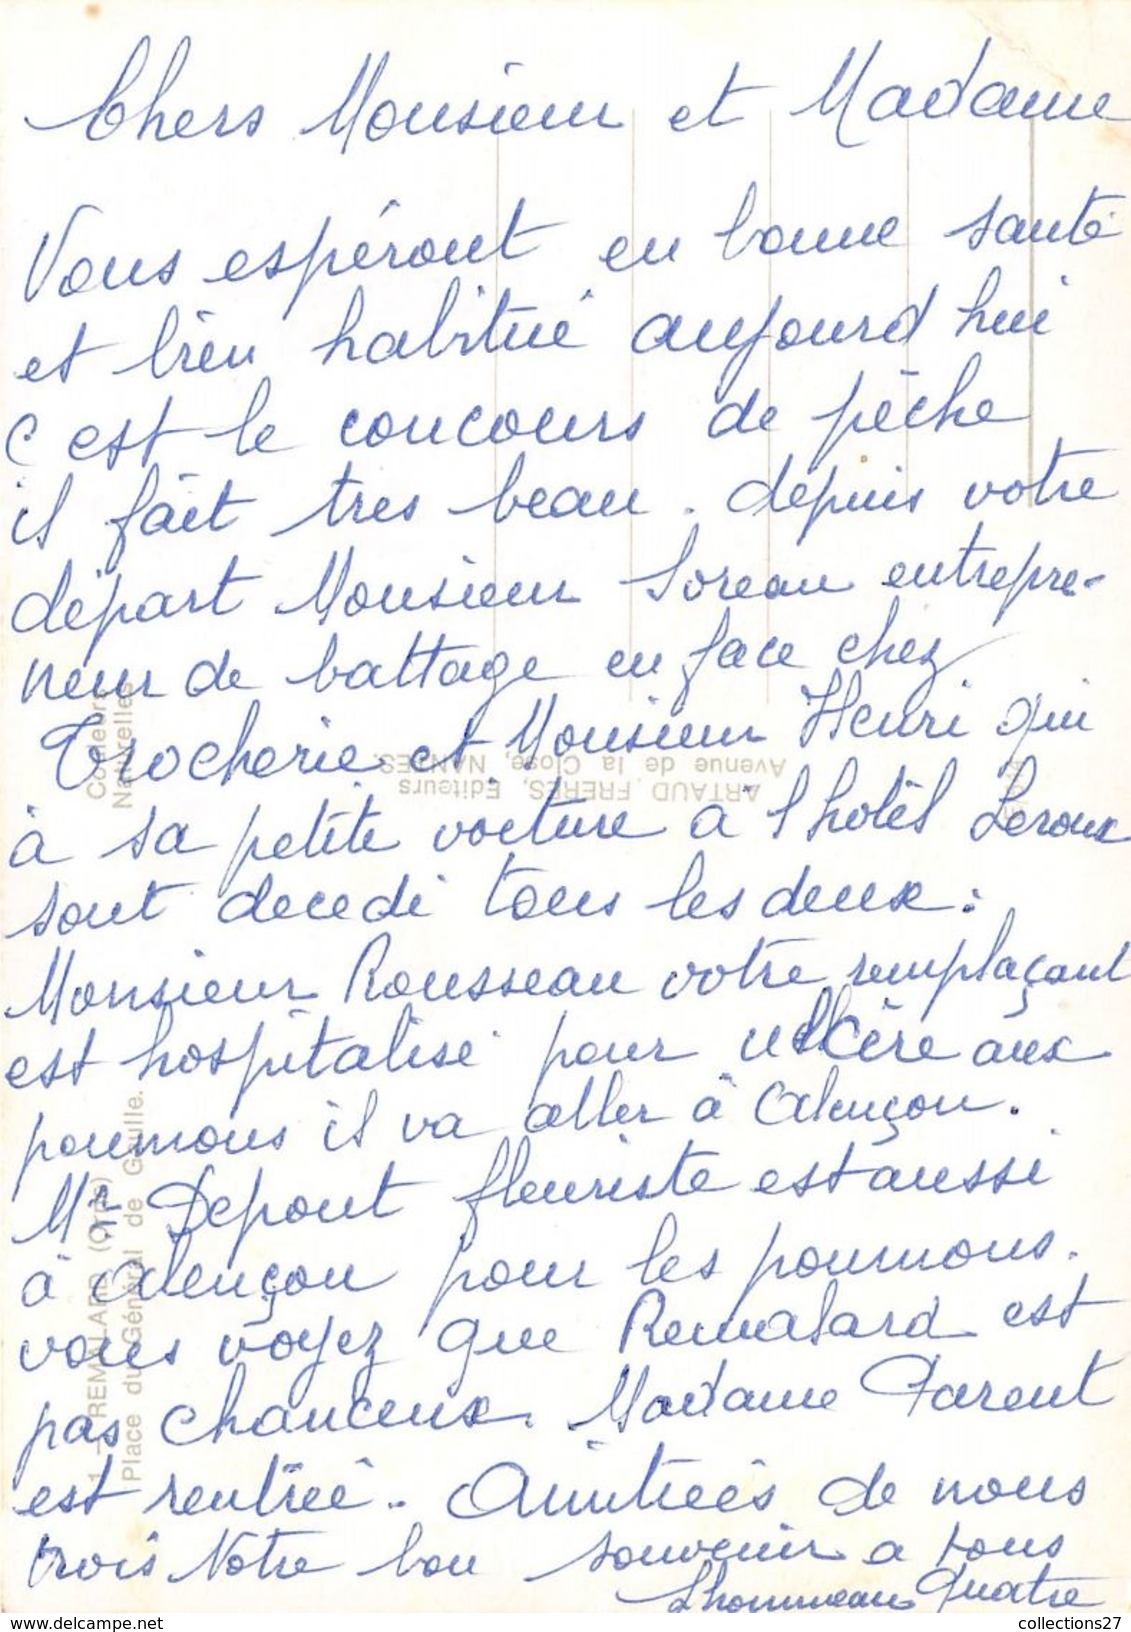 Chers Monsieur et Madame
Vous espéront en bonne santé
et bien habitué aujourd hui
c est le concours de pêche
il fait tres beau. depuis votre
départ Monsieur Soreau entrepre-
neur de battage en face chez
Trocherie et Monsieur Henri qui
à sa petite voiture à l hotêl Leroux
sont decedé tous les deux.
Monsieur Rousseau votre remplaçant
est hospitalisé pour ulcère aux
poumons il va aller à Alençon.
Mr Depont fleuriste est aussi
à Alençon pour les poumons.
vous voyez que Remalard est
pas chanceux. Madame Parent
est rentreé. Amitieés de nous
trois Notre bon souvenir a tous
Lhommeau Quatre
Couleurs
Naturelles
ARTAUD FRÈRES, Éditeurs
Avenue de la Close, NANTES.
1 - REMALARD (Orne)
Place du Général de Gaulle.
collections27